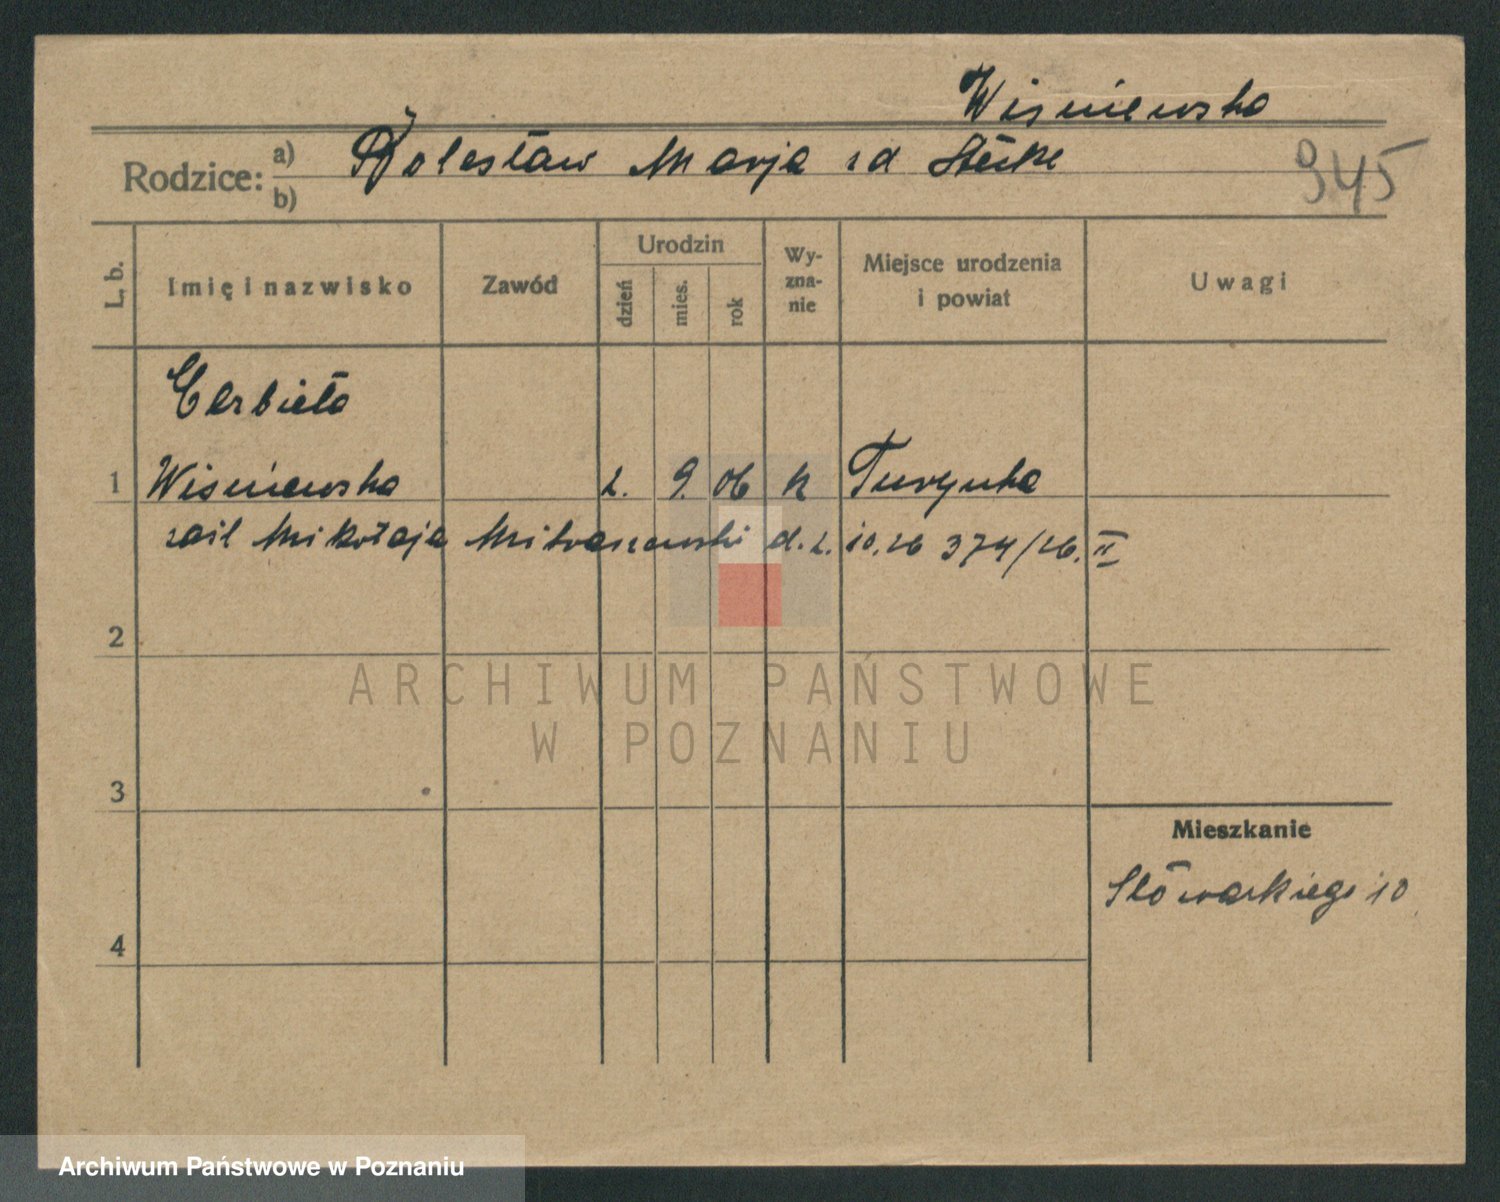 Wiśniewska
Rodzice: a) Bolesław Marja
b)
945
L. b.
Imię i nazwisko
Zawód
Urodzin
dzień
mies.
rok
Wy-
zna-
nie
Miejsce urodzenia
i powiat
Uwagi
Elżbieta
1 Wiśniewska 2. 9. 06 k
Mikołaja d. 2. 10. 26 374/26. II
2
3
4
Mieszkanie
Słowackiego 10
ARCHIWUM PAŃSTWOWE
W POZNANIU
Archiwum Państwowe w Poznaniu